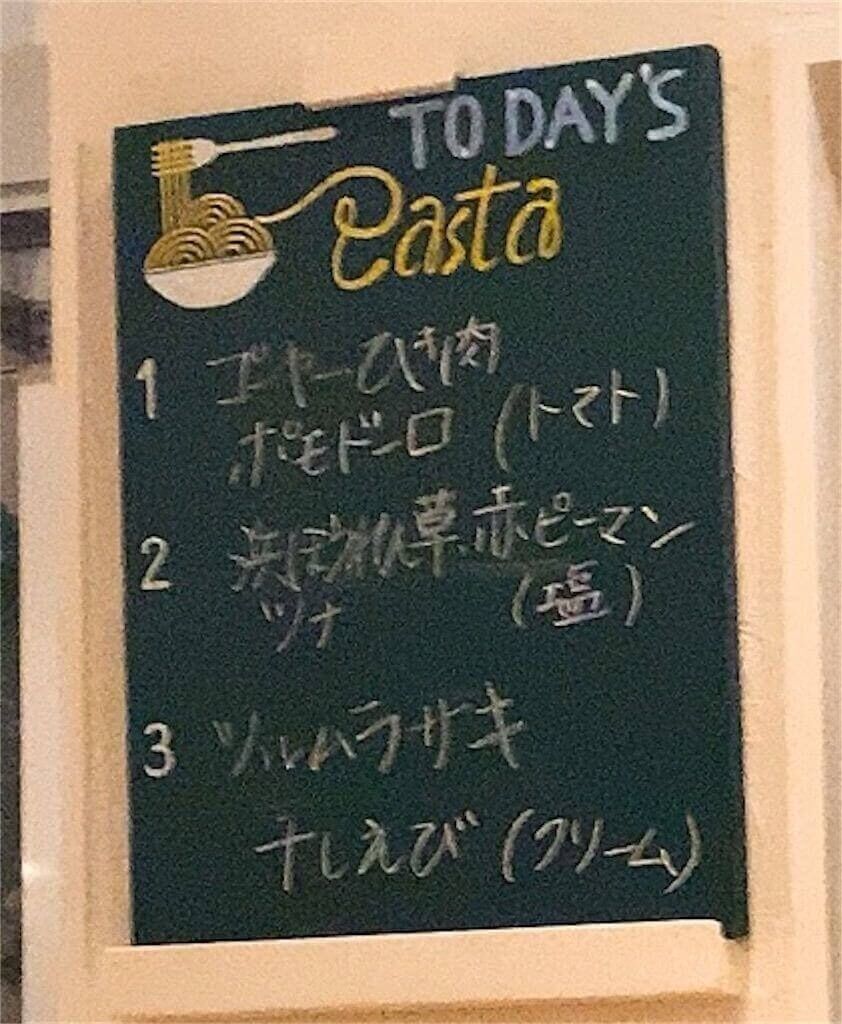 TODAY'S
Pasta
1 ゴーヤーひき肉
ポモドーロ (トマト)
2 浜ほうれん草、赤ピーマン
ツナ (塩)
3 ツルムラサキ
干しえび (クリーム)